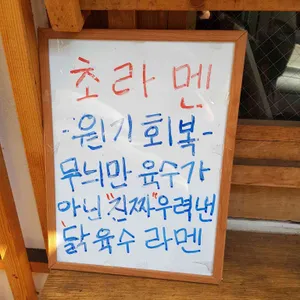 초라멘
-원기회복-
무늬만 육수가
아닌 "진짜" 우려낸
닭육수 라멘